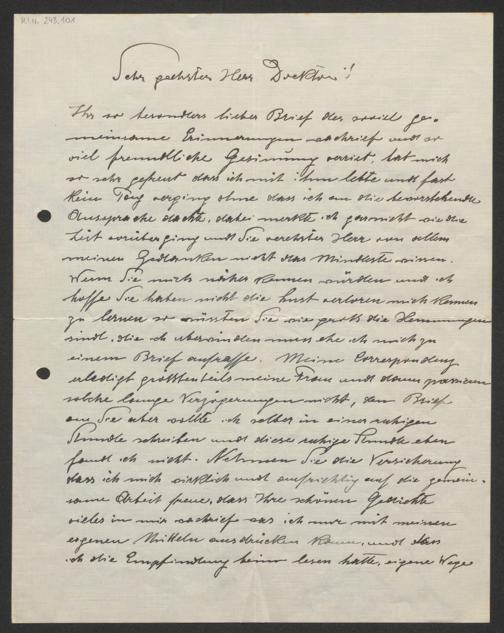 H.I.N. 243.101
Sehr geehrter Herr Doktor!
Ihr so besonders lieber Brief der soviel ge-
meinsame Erinnerungen wachrief und so
viel freundliche Gesinnung verriet, hat mich
so sehr gefreut dass ich mit ihm lebte und fast
kein Tag verging ohne dass ich an die bevorstehende
Aussprache dachte, dabei merkte ich garnicht wie die
Zeit vorüberging und Sie verehrter Herr von allem
meinen Gedanken nicht das Mindeste wissen.
Wenn Sie mich näher kennen würden und ich
hoffe Sie haben nicht die Lust verloren mich kennen
zu lernen so wüssten Sie wie gross die Hemmungen
sind, die ich überwinden muss ehe ich mich zu
einem Brief aufraffe. Meine Correspondenz
erledigt grösstenteils meine Frau und dann passieren
solche lange Verzögerungen nicht, den Brief
an Sie aber wollte ich selber in einer ruhigen
Stunde schreiben und diese ruhige Stunde eben
fand ich nicht. Nehmen Sie die Versicherung
dass ich mich wirklich und aufrichtig auf die gemein-
same Arbeit freue, dass Ihre schönen Gedichte
vieles in mir wachrief was ich nur mit meinen
eigenen Mitteln ausdrücken kann, und dass
ich die Empfindung beim lesen hatte, eigene Wege